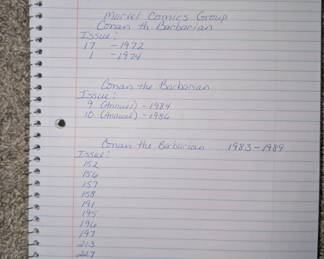 Marvel Comics Group
Conan th Barbarian
Issue:
17 -1972
1 -1974
Conan the Barbarian
Issue:
9 (Annual) - 1984
10 (Annual) - 1986
Conan the Barbarian 1983-1989
Issue:
152
156
157
158
191
195
196
197
213
217